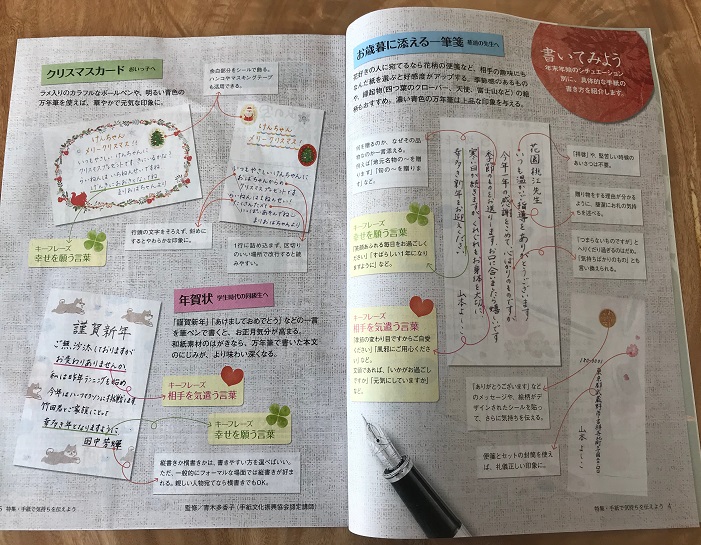 書いてみよう
年末年始のシチュエーション
別に、具体的な手紙の
書き方を紹介します。
お歳暮に添える一筆箋 華道の先生へ
花好きの人に宛てるなら花柄の便箋など、相手の趣味にち
なんだ紙を選ぶと好感度がアップする。季節感のあるもの
や、縁起物(四つ葉のクローバー、天使、富士山など)の絵
柄もおすすめ。濃い青色の万年筆は上品な印象に。
何を贈るのか、なぜその品
なのか一言添える。
例えば「地元名物の〜を贈
ります」「旬の〜を贈りま
す」など。
花園 桃江先生
いつも温かいご指導をありがとうございます。
今年一年の感謝をこめて、心ばかりのものですが
季節のものをお送りします。お口に合いましたら嬉しいです
寒い日が続きますが、くれぐれもお身体を大切に
幸多き新年をお迎えください
山本よしこ
「拝啓」や、堅苦しい時候の
あいさつは不要。
贈り物をする理由が分かる
ように、簡潔にお礼の気持
ちを述べる。
「つまらないものですが」と
へりくだり過ぎるのはだめ。
「気持ちばかりのもの」とも
言い換えられる。
キーフレーズ
幸せを願う言葉
「笑顔あふれる毎日をお過ごしく
ださい」「すばらしい1年になり
ますように」など。
キーフレーズ
相手を気遣う言葉
「季節の変わり目ですからご自愛
ください」「風邪にご用心ください」
など。
「いかがお過ごし
ですか」「元気にしていますか」
など。
「ありがとうございます」など
のメッセージや、絵柄が
デザインされたシールを貼っ
て、さらに気持ちを伝える。
便箋とセットの封筒を使え
ば、礼儀正しい印象に。
山本よしこ
特集・手紙で気持ちを伝えよう 4
クリスマスカード おいっ子へ
ラメ入りのカラフルなボールペンや、明るい青色の
万年筆を使えば、華やかで元気な印象に。
余白部分をシールで飾る。
ハンコやマスキングテープ
も活用できる。
けんちゃん
メリークリスマス!!
いつもやさしい けんちゃんに
クリスマスプレゼントです きにいるかな?
らいねんは いちねんせいですね
げんきにおおきくなってね
まりおばちゃんより
けんちゃん
メリークリスマス!
いつもやさしいけんちゃんに
おばちゃんからの
クリスマスプレゼントです
らいねんは1ねんせい!
まりおばちゃんより
行頭の文字をそろえず、斜めに
するとやわらかな印象に。
1行に詰め込まず、区切り
のいい場所で改行すると読
みやすい。
キーフレーズ
幸せを願う言葉
年賀状 学生時代の同級生へ
「謹賀新年」「あけましておめでとう」などの一言
を筆ペンで書くと、お正月気分が高まる。
和紙素材のはがきなら、万年筆で書いた本文
のにじみが、より味わい深くなる。
謹賀新年
ご無沙汰しておりますが
お変わりありませんか
私は昨年ランニングを始め
今年はハーフマラソンに挑戦します
竹田君とご家族にとって
幸多き年となりますように
田中芳輝
キーフレーズ
相手を気遣う言葉
キーフレーズ
幸せを願う言葉
縦書きか横書きかは、書きやすい方を選べばいい。
ただ、一般的にフォーマルな場面では縦書きが好ま
れる。親しい人物宛てなら横書きでもOK。
監修/青木多香子(手紙文化振興協会認定講師)
5 特集・手紙で気持ちを伝えよう